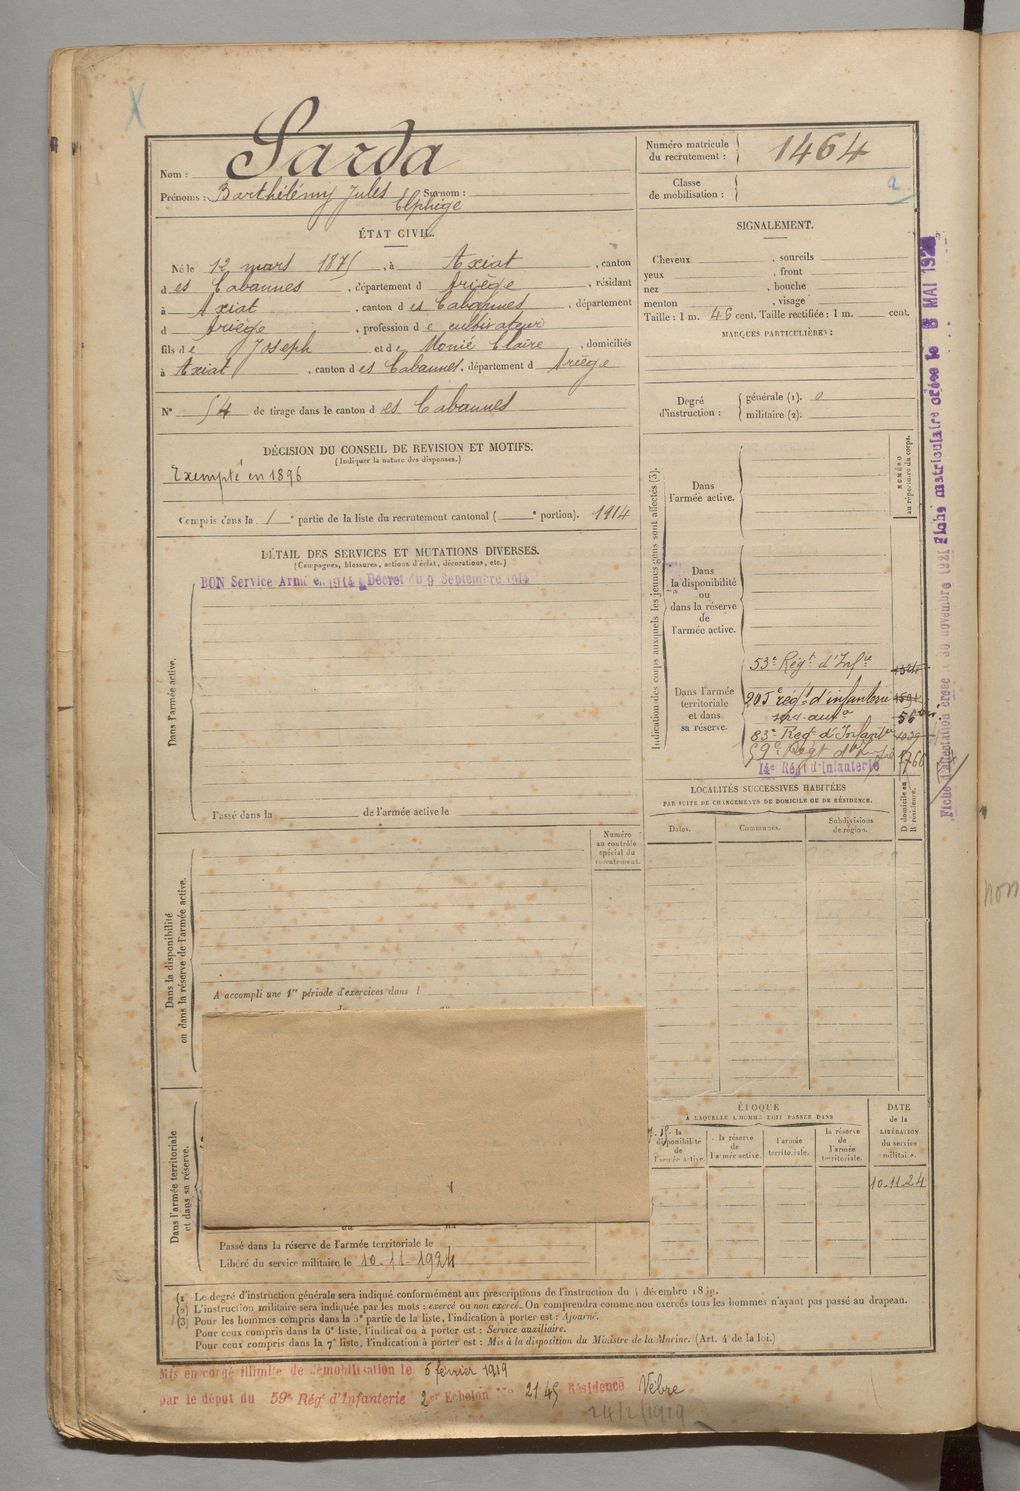 Nom : Sarda
Prénoms : Barthélémy Jules Elphège Surnom :
Numéro matricule du recrutement : 1464
Classe de mobilisation :
ÉTAT CIVIL.
Né le 12 mars 1875, à Axiat, canton
d es Cabannes, département d Ariège, résidant
à Axiat, canton d es Cabannes, département
d Ariège, profession d e cultivateur
fils d e Joseph et d e Monié Claire, domiciliés
à Axiat, canton d es Cabannes, département d Ariège
N° 54 de tirage dans le canton d es Cabannes
SIGNALEMENT.
Cheveux , sourcils
yeux , front
nez , bouche
menton , visage
Taille : 1 m. 46 cent. Taille rectifiée : 1 m. cent.
MARQUES PARTICULIÈRES :
Degré d'instruction :
générale (1). 0
militaire (2).
DÉCISION DU CONSEIL DE REVISION ET MOTIFS.
(Indiquer la nature des dispenses.)
Exempté en 1896
Compris dans la 1e partie de la liste du recrutement cantonal ( e portion). 1914
DÉTAIL DES SERVICES ET MUTATIONS DIVERSES.
(Campagnes, blessures, actions d'éclat, décorations, etc.)
BON Service Armé en 1914 Décret du 9 Septembre 1914
Dans l'armée active.
Passé dans la de l'armée active le
Indication des corps auxquels les jeunes gens sont affectés (3).
NUMÉRO au répertoire du corps.
Dans l'armée active.
Dans la disponibilité ou dans la réserve de l'armée active.
Dans l'armée territoriale et dans sa réserve.
53e Régt d'Infie
205e régt d'infanterie
83e Régt d'Infantie
59e Régt d'Inf
14e Régt d'Infanterie
LOCALITÉS SUCCESSIVES HABITÉES
PAR SUITE DE CHANGEMENTS DE DOMICILE OU DE RÉSIDENCE.
Dates.
Communes.
Subdivisions de région.
D domicile ou R résidence.
Numéro au contrôle spécial du recrutement.
Dans la disponibilité ou dans la réserve de l'armée active.
A accompli une 1re période d'exercices dans l
Dans l'armée territoriale et dans sa réserve.
ÉPOQUE
À LAQUELLE L'HOMME DOIT PASSER DANS
la disponibilité de l'armée active.
la réserve de l'armée active.
l'armée territoriale.
la réserve de l'armée territoriale.
DATE de la LIBÉRATION du service militaire.
10-11-24
du au
Passé dans la réserve de l'armée territoriale le
Libéré du service militaire le 10-11-1924
(1) Le degré d'instruction générale sera indiqué conformément aux prescriptions de l'instruction du 4 décembre 1889.
(2) L'instruction militaire sera indiquée par les mots : exercé ou non exercé. On comprendra comme non exercés tous les hommes n'ayant pas passé au drapeau.
(3) Pour les hommes compris dans la 5e partie de la liste, l'indication à porter est : Ajourné.
Pour ceux compris dans la 6e liste, l'indication à porter est : Service auxiliaire.
Pour ceux compris dans la 7e liste, l'indication à porter est : Mis à la disposition du Ministre de la Marine. (Art. 4 de la loi.)
Mis en congé illimité de démobilisation le 6 février 1919
par le dépôt du 59e Régt d'Infanterie 2er Echelon No 2145 Résidence Vèbre
24/2/1919
Fiche d'affectation créée le 30 novembre 1921 Fiche matriculaire créée le 8 MAI 192
non